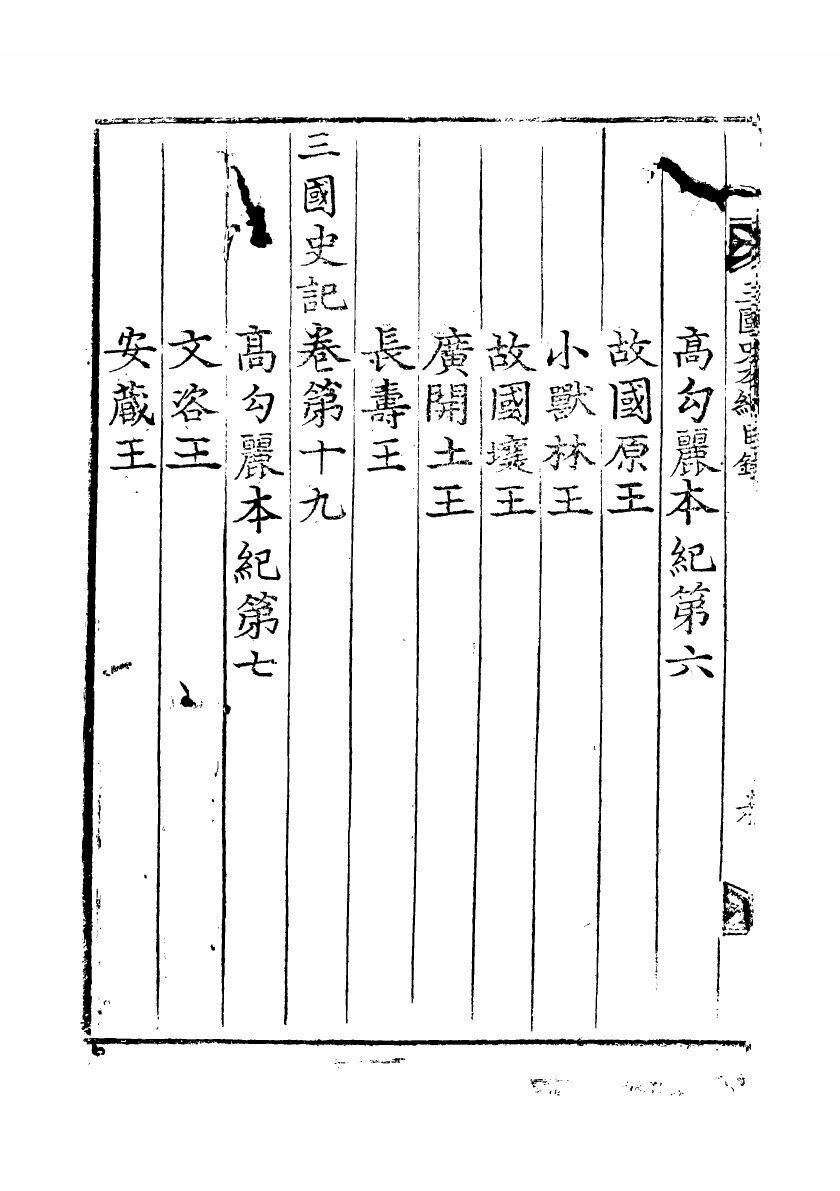 三國史本紀目錄
高勾麗本紀第六
故國原王
小獸林王
故國壤王
廣開土王
長壽王
三國史記卷第十九
高勾麗本紀第七
文咨王
安藏王